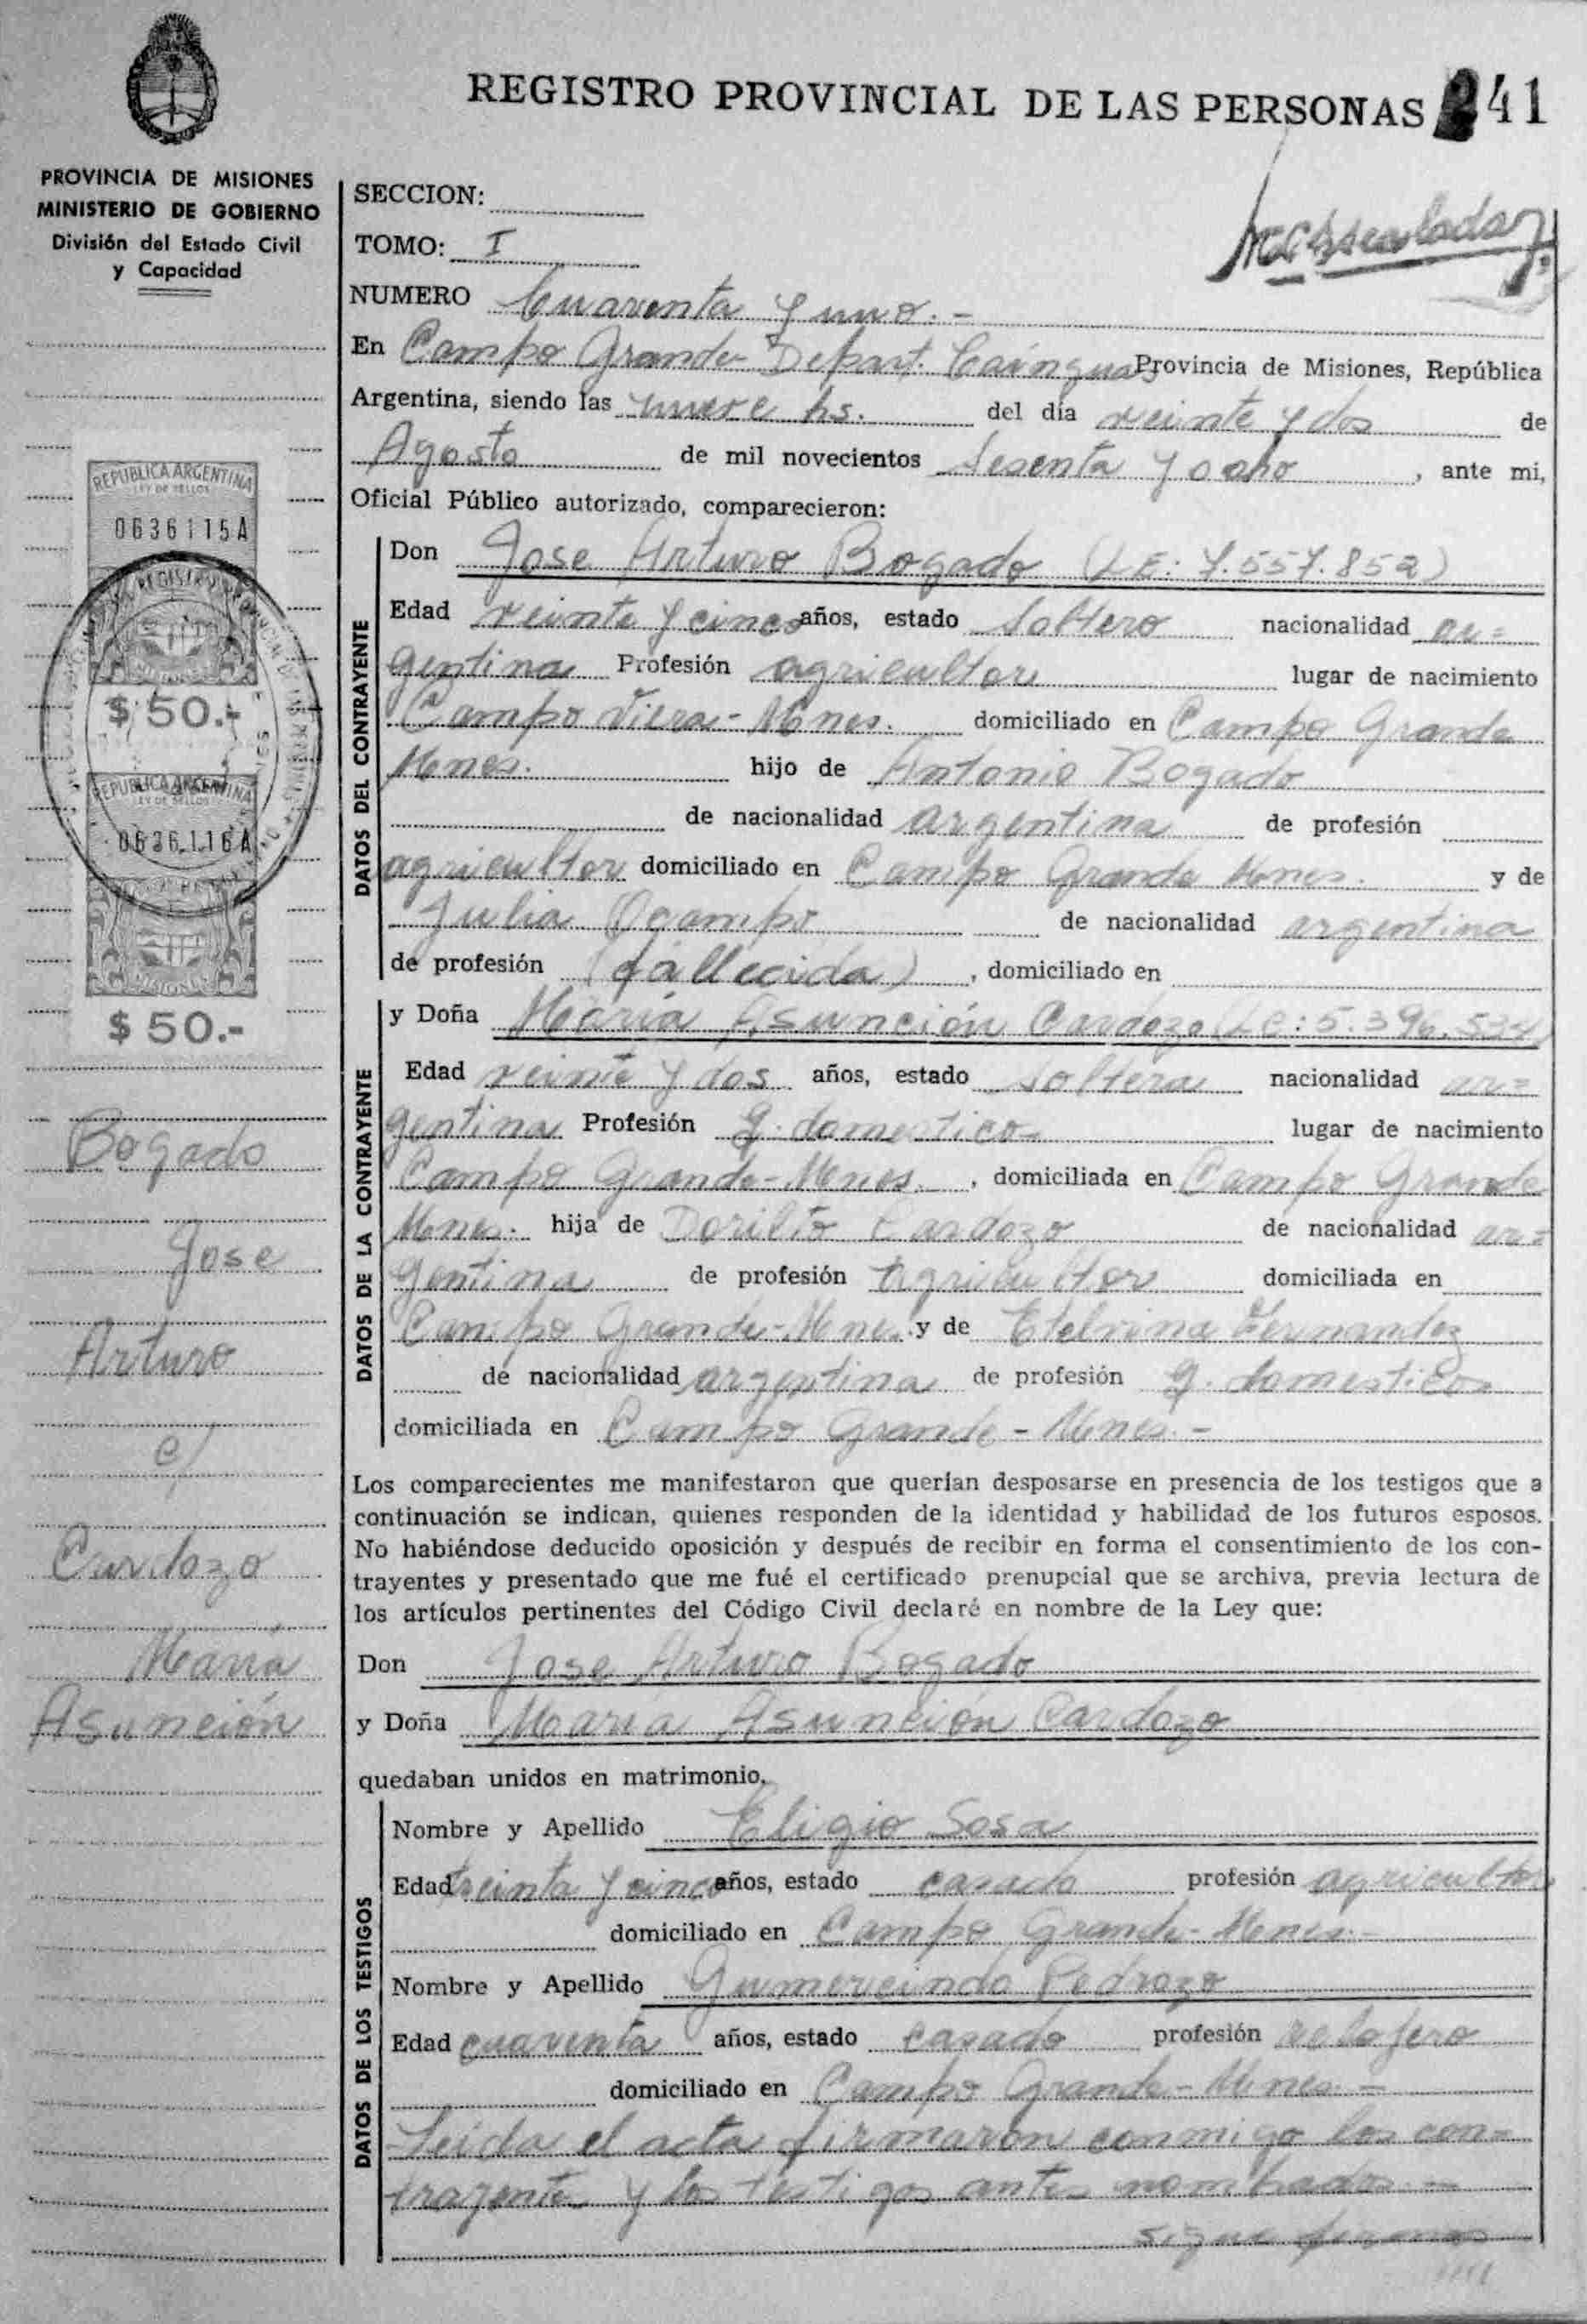 REGISTRO PROVINCIAL DE LAS PERSONAS 41
PROVINCIA DE MISIONES
MINISTERIO DE GOBIERNO
División del Estado Civil
y Capacidad
SECCION:
TOMO: I
NUMERO Cuarenta y uno.-
En Campo Grande Depart. Cainguas Provincia de Misiones, República
Argentina, siendo las nueve hs. del día veinte y dos de
Agosto de mil novecientos Sesenta y ocho, ante mi,
Oficial Público autorizado, comparecieron:
DATOS DEL CONTRAYENTE
Don Jose Arturo Bogado (LE: 7.557.852)
Edad veinte y cinco años, estado Soltero nacionalidad ar=
gentina Profesión agricultor lugar de nacimiento
Campo Viera - Mnes. domiciliado en Campo Grande
Mnes. hijo de Antonio Bogado
de nacionalidad argentina de profesión
agricultor domiciliado en Campo Grande Mnes. y de
Julia Ocampo de nacionalidad argentina
de profesión (fallecida), domiciliado en
DATOS DE LA CONTRAYENTE
y Doña María Asunción Cardozo (LC: 5.396.534)
Edad veinte y dos años, estado Soltera nacionalidad ar=
gentina Profesión q. domestico lugar de nacimiento
Campo Grande - Mnes., domiciliada en Campo Grande
Mnes. hija de Dorilto Cardozo de nacionalidad ar=
gentina de profesión Agricultor domiciliada en
Campo Grande - Mnes. y de Etelvina Fernandez
de nacionalidad argentina de profesión q. domesticos
domiciliada en Campo Grande - Mnes. -
Los comparecientes me manifestaron que querían desposarse en presencia de los testigos que a
continuación se indican, quienes responden de la identidad y habilidad de los futuros esposos.
No habiéndose deducido oposición y después de recibir en forma el consentimiento de los con-
trayentes y presentado que me fué el certificado prenupcial que se archiva, previa lectura de
los artículos pertinentes del Código Civil declaré en nombre de la Ley que:
Don Jose Arturo Bogado
y Doña María Asunción Cardozo
quedaban unidos en matrimonio.
DATOS DE LOS TESTIGOS
Nombre y Apellido Eligio Sosa
Edad treinta y cinco años, estado casado profesión agricultor
domiciliado en Campo Grande - Mnes. -
Nombre y Apellido Gumercindo Pedrozo
Edad cuarenta años, estado casado profesión relojero
domiciliado en Campo Grande - Mnes. -
Leída el acta firmaron conmigo los con=
trayentes y los testigos antes nombrados. -
sigue firmas
////
REPUBLICA ARGENTINA
LEY DE SELLOS
0636115A
MISIONES
$ 50.-
REPUBLICA ARGENTINA
LEY DE SELLOS
0636116A
MISIONES
$ 50.-
Bogado
Jose
Arturo
c/
Cardozo
María
Asunción